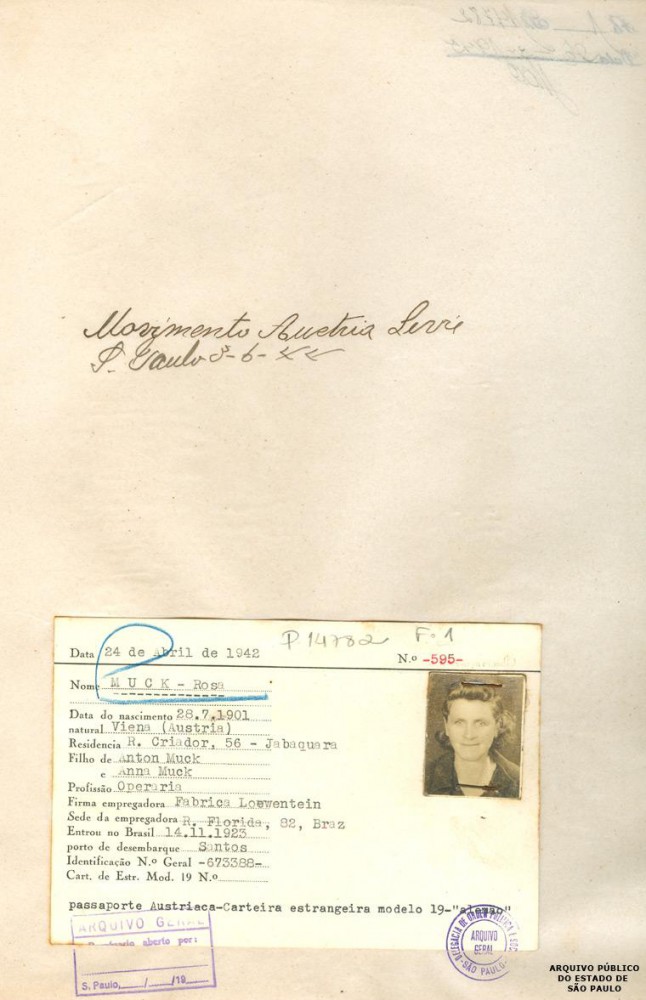 Movimento Austria Livre
S. Paulo 3-6-
P. 14782 F. 1
Data 24 de Abril de 1942 N.º -595-
Nome M U C K - Rosa
Data do nascimento 28.7.1901
natural Viena (Austria)
Residencia R. Criador, 56 - Jabaquara
Filho de Anton Muck
e Anna Muck
Profissão Operaria
Firma empregadora Fabrica Loewentein
Sede da empregadora R. Florida, 82, Braz
Entrou no Brasil 14.11.1923
porto de desembarque Santos
Identificação N.º Geral -673388-
Cart. de Estr. Mod. 19 N.º
passaporte Austriaca-Carteira estrangeira modelo 19-"alemao"
ARQUIVO GERAL
aberto por:
S. Paulo, / /19
DELEGACIA DE ORDEM POLITICA E SOC
ARQUIVO
GERAL
SÃO PAULO
ARQUIVO PÚBLICO
DO ESTADO DE
SÃO PAULO